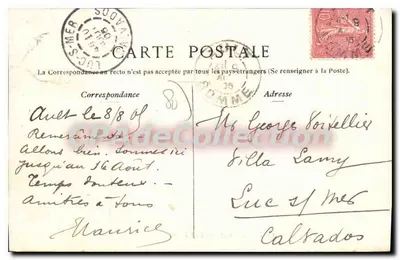 LUC-S-MER
CALVADOS
CARTE POSTALE
La Correspondance au recto n'est pas acceptée par tous les pays étrangers (Se renseigner à la Poste).
Correspondance
Adresse
SOMME
Ault le 8/8 05
Allons bien. Sommes ici
jusqu'au 16 Août.
Temps douteux. —
Amitiés à tous
Maurice
Mr George Voisellier
Villa Lamy
Luc s/ Mer
Calvados
PostcardCollection